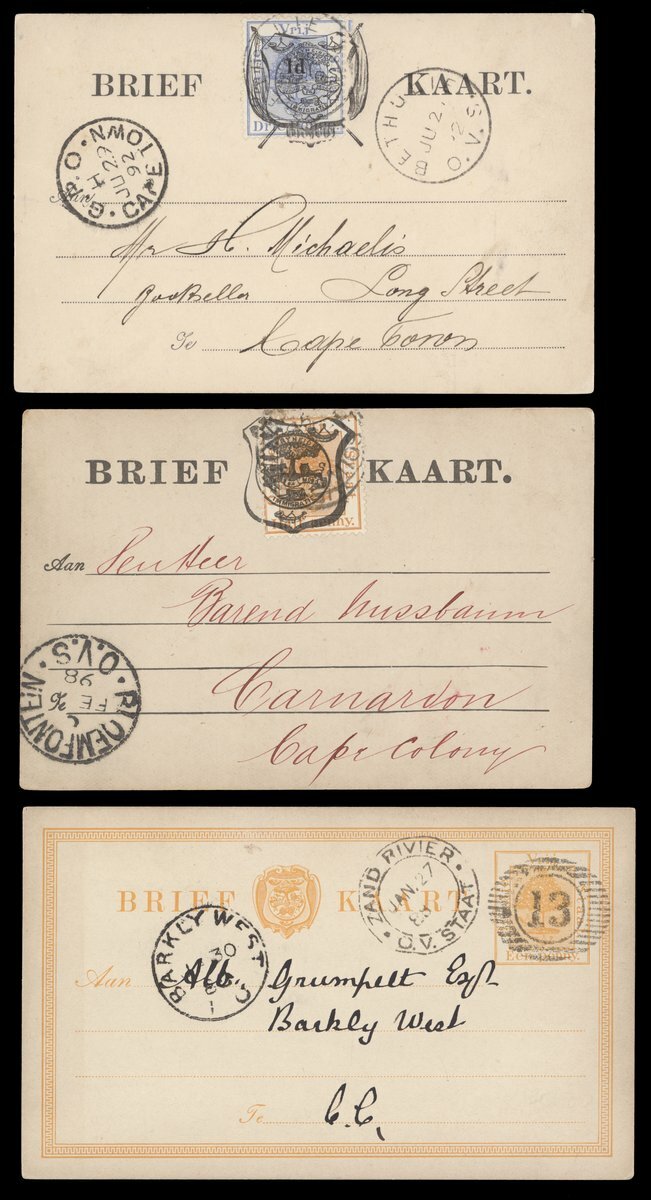 BRIEF KAART.
Vrij
1d.
BETHU O.V.S.
JU 2
92
G.P.O. CAPE TOWN
H
JU 29
92
Aan
Mr H. Michaelis
Bookseller Long Street
Te Cape Town
BRIEF KAART.
penny.
Aan Den Heer
Barend Nussbaum
Carnarvon
Cape Colony
BLOEMFONTEIN O.V.S.
FE 26
98
BRIEF KAART
ZAND RIVIER
JAN. 27
O.V. STAAT
13
Een Penny.
BARKLY WEST
30
Aan Alb. Grumpelt Esq.
Barkly West
Te C.C.